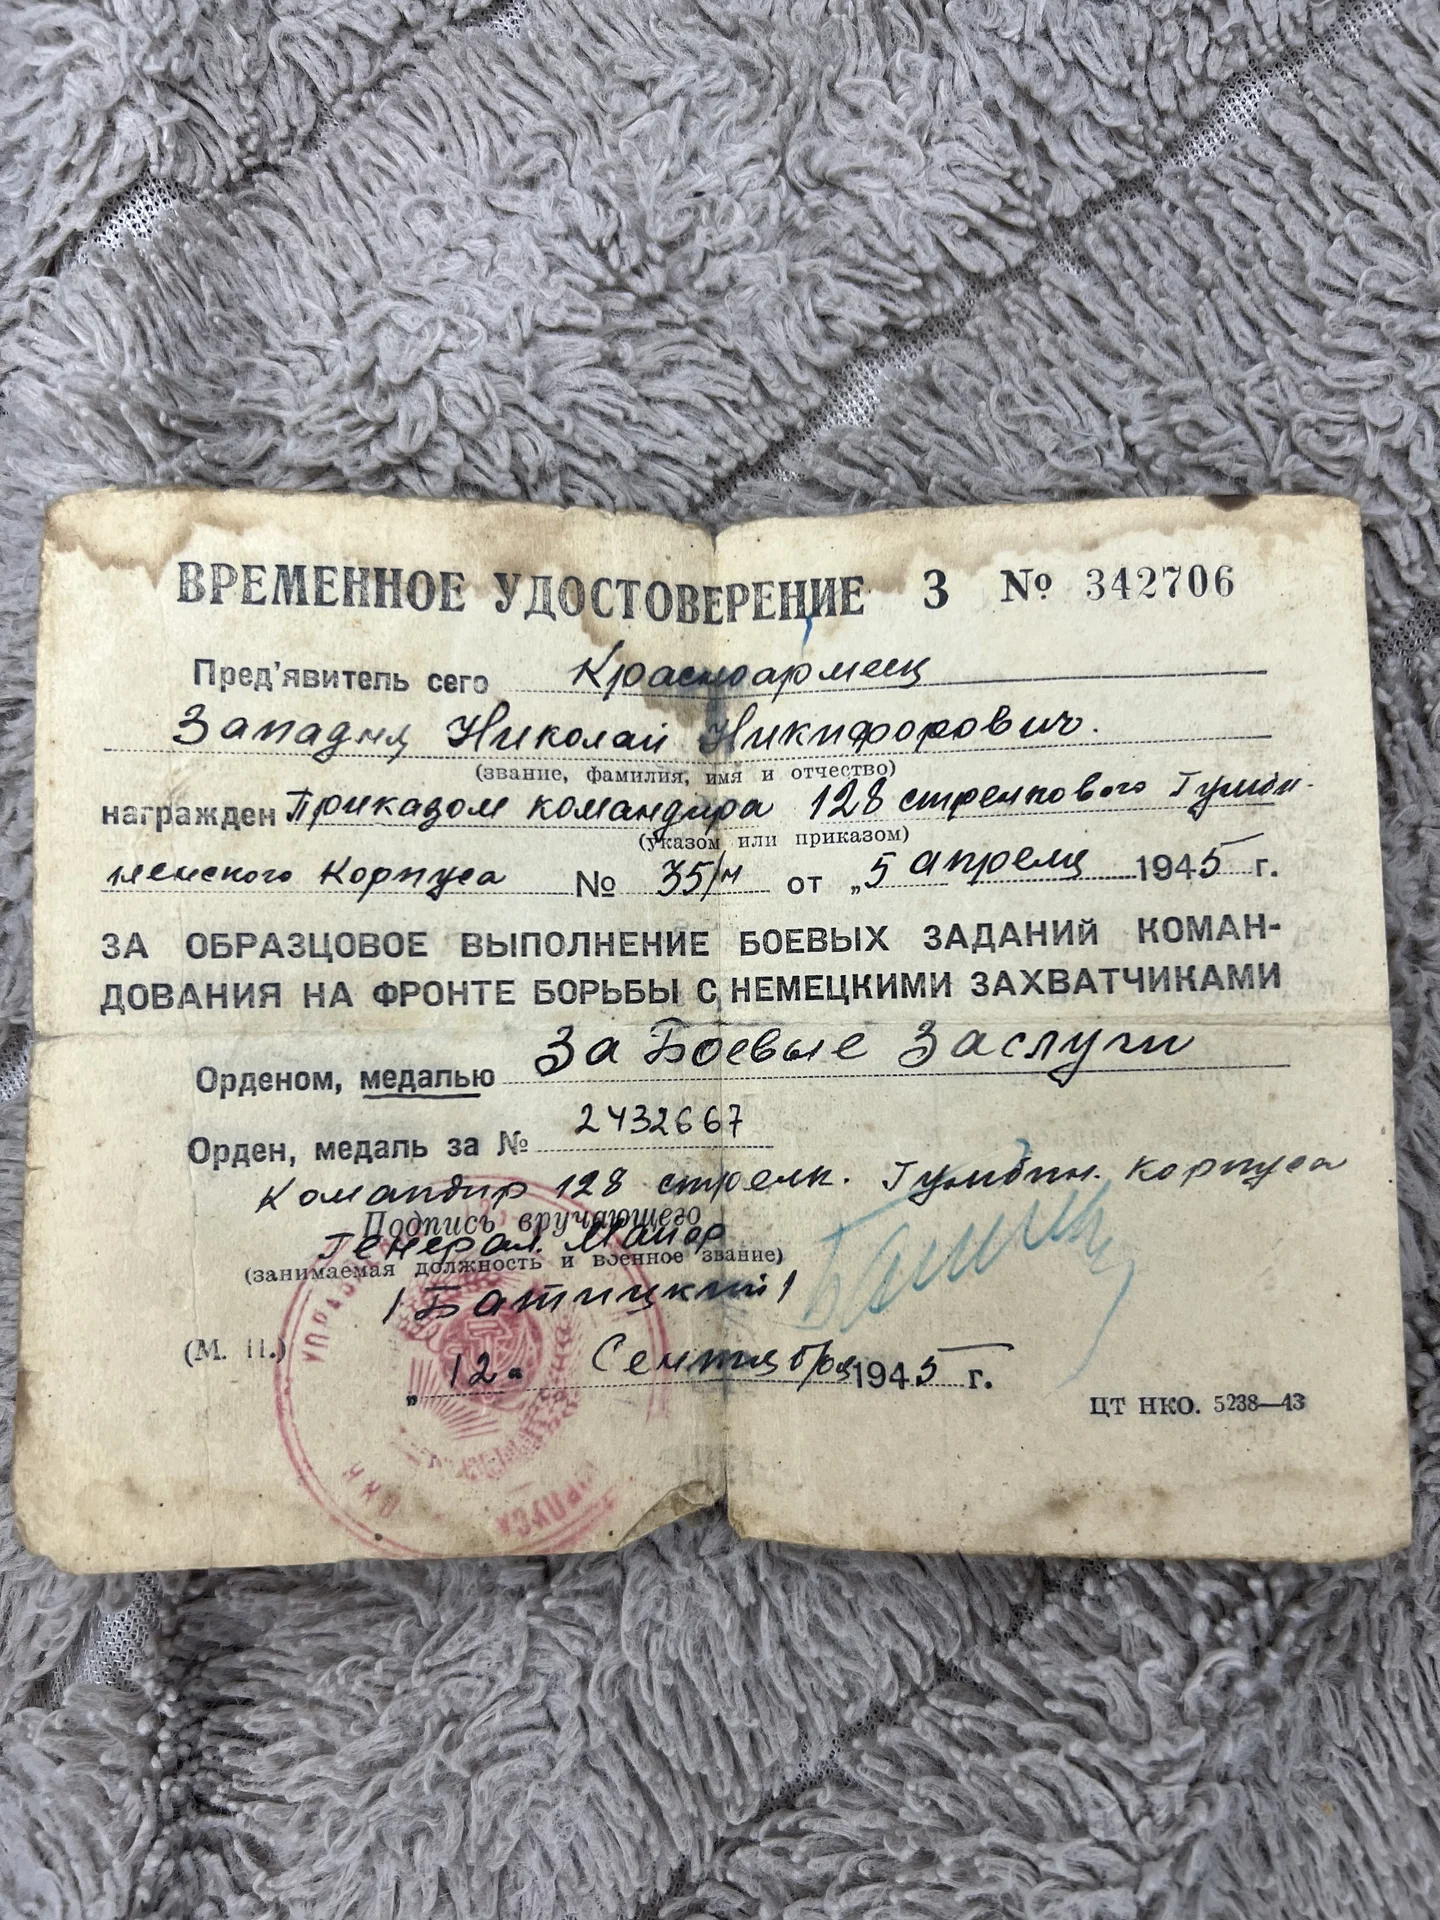 ВРЕМЕННОЕ УДОСТОВЕРЕНИЕ З № 342706
Пред'явитель сего Красноармеец
Западня Николай Никифорович.
(звание, фамилия, имя и отчество)
награжден Приказом командира 128 стрелкового Гумбин-
(указом или приказом)
ненского Корпуса № 35/н от „5 апреля 1945 г.
ЗА ОБРАЗЦОВОЕ ВЫПОЛНЕНИЕ БОЕВЫХ ЗАДАНИЙ КОМАН-
ДОВАНИЯ НА ФРОНТЕ БОРЬБЫ С НЕМЕЦКИМИ ЗАХВАТЧИКАМИ
Орденом, медалью За Боевые Заслуги
Орден, медаль за № 2432667
Командир 128 стрелк. Гумбин. корпуса
Подпись вручающего
Генерал Майор
(занимаемая должность и военное звание)
/Батицкий/
(М. П.)
„12“ Сентября 1945 г.
ЦТ НКО. 5238—43
КОРПУСА
НКО